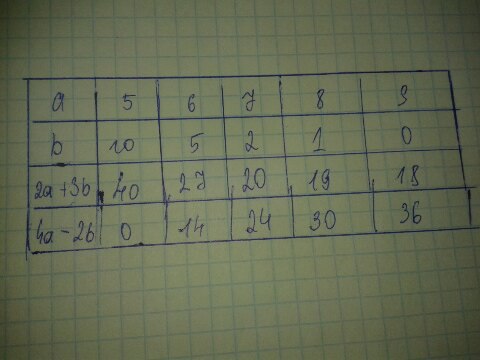 a 5 6 7 8 9
b 10 5 2 1 0
2a+3b 40 27 20 19 18
4a-2b 0 14 24 30 36